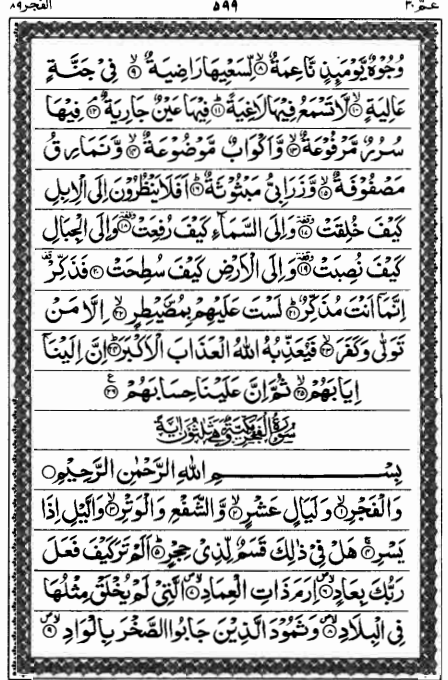 عمّ ٣٠ ٥٩٩ الفجر ٨٩
وُجُوۡهٌ يَّوۡمَئِذٍ نَّاعِمَةٌ ۙ﴿۸﴾ لِّسَعۡيِهَا رَاضِيَةٌ ۙ﴿۹﴾ فِىۡ جَنَّةٍ
عَالِيَةٍ ۙ﴿۱۰﴾ لَّا تَسۡمَعُ فِيۡهَا لَاغِيَةً ؕ﴿۱۱﴾ فِيۡهَا عَيۡنٌ جَارِيَةٌ ۘ﴿۱۲﴾ فِيۡهَا
سُرُرٌ مَّرۡفُوۡعَةٌ ۙ﴿۱۳﴾ وَّاَكۡوَابٌ مَّوۡضُوۡعَةٌ ۙ﴿۱۴﴾ وَّنَمَارِقُ
مَصۡفُوۡفَةٌ ۙ﴿۱۵﴾ وَّزَرَابِىُّ مَبۡثُوۡثَةٌ ؕ﴿۱۶﴾ اَفَلَا يَنۡظُرُوۡنَ اِلَى الۡاِبِلِ
كَيۡفَ خُلِقَتۡ ۥ﴿۱۷﴾ وَاِلَى السَّمَآءِ كَيۡفَ رُفِعَتۡ ۥ﴿۱۸﴾ وَاِلَى الۡجِبَالِ
كَيۡفَ نُصِبَتۡ ۥ﴿۱۹﴾ وَاِلَى الۡاَرۡضِ كَيۡفَ سُطِحَتۡ ۥ﴿۲۰﴾ فَذَكِّرۡ ؕ
اِنَّمَاۤ اَنۡتَ مُذَكِّرٌ ؕ﴿۲۱﴾ لَسۡتَ عَلَيۡهِمۡ بِمُصَۜيۡطِرٍ ۙ﴿۲۲﴾ اِلَّا مَنۡ
تَوَلّٰى وَكَفَرَ ۙ﴿۲۳﴾ فَيُعَذِّبُهُ اللّٰهُ الۡعَذَابَ الۡاَكۡبَرَ ؕ﴿۲۴﴾ اِنَّ اِلَيۡنَاۤ
اِيَابَهُمۡ ۙ﴿۲۵﴾ ثُمَّ اِنَّ عَلَيۡنَا حِسَابَهُمۡ ﴿۲۶﴾
سُوۡرَةُ الۡفَجۡرِ مَكِّيَّةٌ وَّهِىَ ثَلٰثُوۡنَ اٰيَةً
بِسۡمِ اللّٰهِ الرَّحۡمٰنِ الرَّحِيۡمِ
وَالۡفَجۡرِ ۙ﴿۱﴾ وَلَيَالٍ عَشۡرٍ ۙ﴿۲﴾ وَّالشَّفۡعِ وَالۡوَتۡرِ ۙ﴿۳﴾ وَالَّيۡلِ اِذَا
يَسۡرِ ۚ﴿۴﴾ هَلۡ فِىۡ ذٰلِكَ قَسَمٌ لِّذِىۡ حِجۡرٍ ؕ﴿۵﴾ اَلَمۡ تَرَ كَيۡفَ فَعَلَ
رَبُّكَ بِعَادٍ ۙ﴿۶﴾ اِرَمَ ذَاتِ الۡعِمَادِ ۙ﴿۷﴾ الَّتِىۡ لَمۡ يُخۡلَقۡ مِثۡلُهَا
فِى الۡبِلَادِ ۙ﴿۸﴾ وَثَمُوۡدَ الَّذِيۡنَ جَابُوا الصَّخۡرَ بِالۡوَادِ ۙ﴿۹﴾